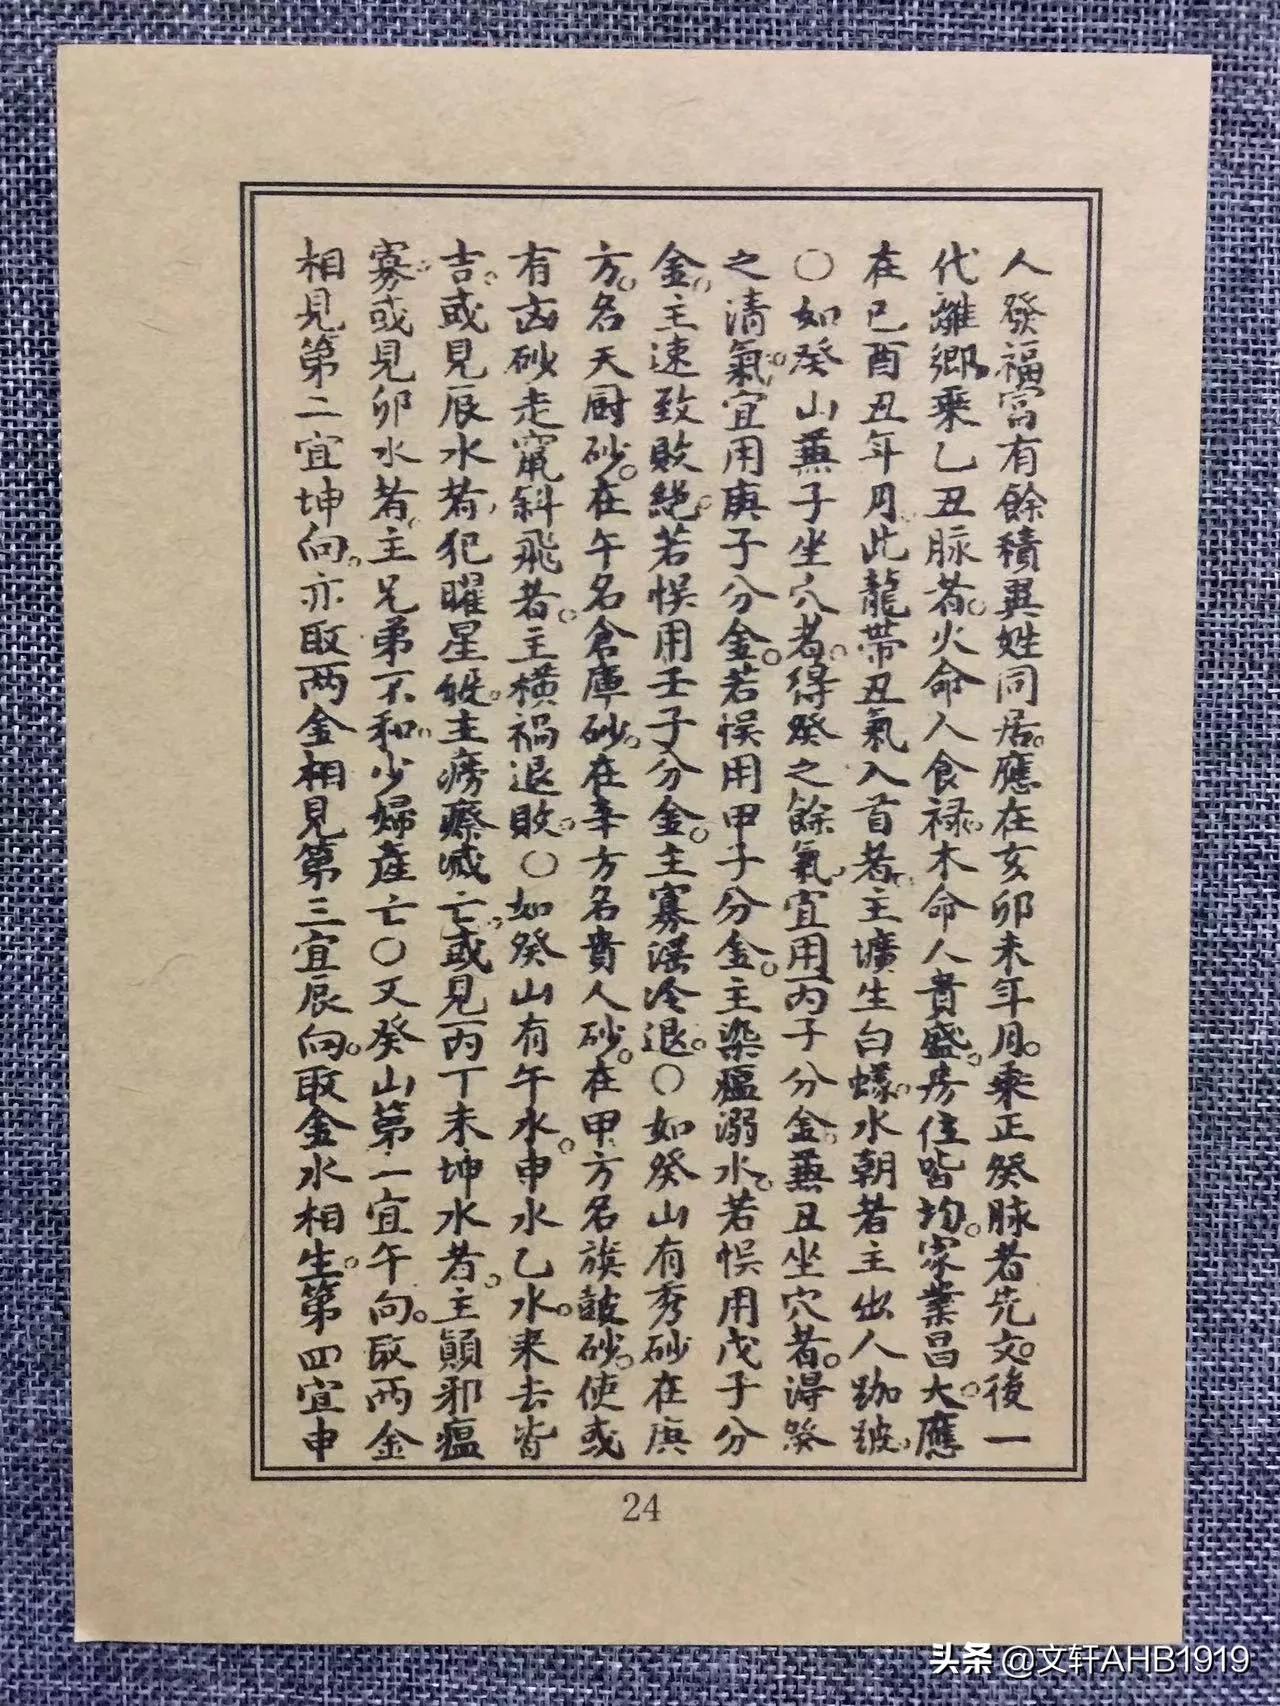 人發福富有餘積異姓同居。應在亥卯未年月。乘正癸脉者先文。後一
代離鄉。乘乙丑脉者。火命人食祿。木命人貴盛。房位皆均。家業昌大。應
在巳酉丑年月。此龍帶丑氣入首者。主壙生白蟻。水朝者主出人跏跛。
〇如癸山兼子坐穴者。得癸之餘氣。宜用丙子分金。兼丑坐穴者。得癸
之清氣。宜用庚子分金。若悞用甲子分金。主染瘟溺水。若悞用戊子分
金。主速致敗絕。若悞用壬子分金。主寡淫冷退。〇如癸山有秀砂在庚
方。名天厨砂。在午名倉庫砂。在辛方名貴人砂。在甲方名旗鼓砂。使或
有凶砂走竄斜飛者。主橫禍退敗。〇如癸山有午水。申水乙水。来去皆
吉。或見辰水若犯曜星煞。主癆瘵减亡。或見丙丁未坤水者。主顛邪瘟
寡。或見卯水者。主兄弟不和。少婦產亡〇又癸山第一宜午向。取两金
相見第二宜坤向。亦取两金相見第三宜辰向。取金水相生。第四宜申
24
头条 @文轩AHB1919